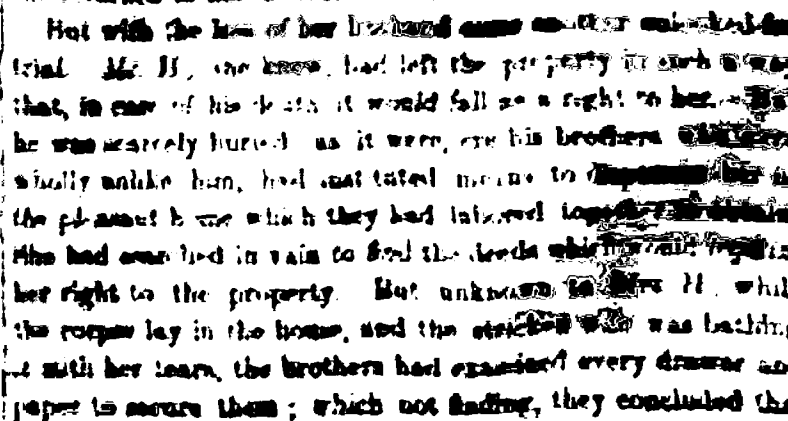 But with the loss of her husband came another unlooked for
trial. Mr. H., she knew, had left the property in such a way
that, in case of his death it would fall as a right to her.
he was scarcely buried as it were, ere his brothers
wholly unlike him, had instituted means to her
the pleasant home which they had labored together to
She had searched in vain to find the deeds which
her right to the property. But unknown to Mrs H. whil
the corpse lay in the house, and the stricken wife was bathing
it with her tears, the brothers had examined every drawer an
paper to secure them ; which not finding, they concluded tha